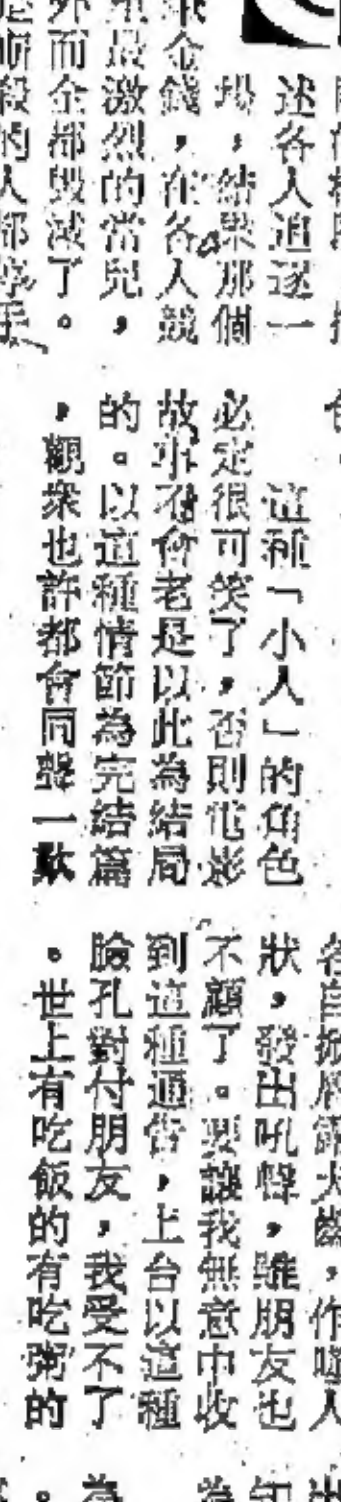 述各人追逐一
場，結果那個
金錢，在各人競
最激烈的當兒，
外而全都毀滅了。
殺的人都停手
這種「小人」的角色
必定很可笑了，否則電影
故事不會老是以此為結局
的。以這種情節為完結篇
，觀眾也許都會同聲一歎
各自掀唇露大齒，作噬人
狀，發出吼聲，雖朋友也
不顧了。要讓我無意中收
到這種通告，上台以這種
臉孔對付朋友，我受不了
。世上有吃飯的有吃粥的